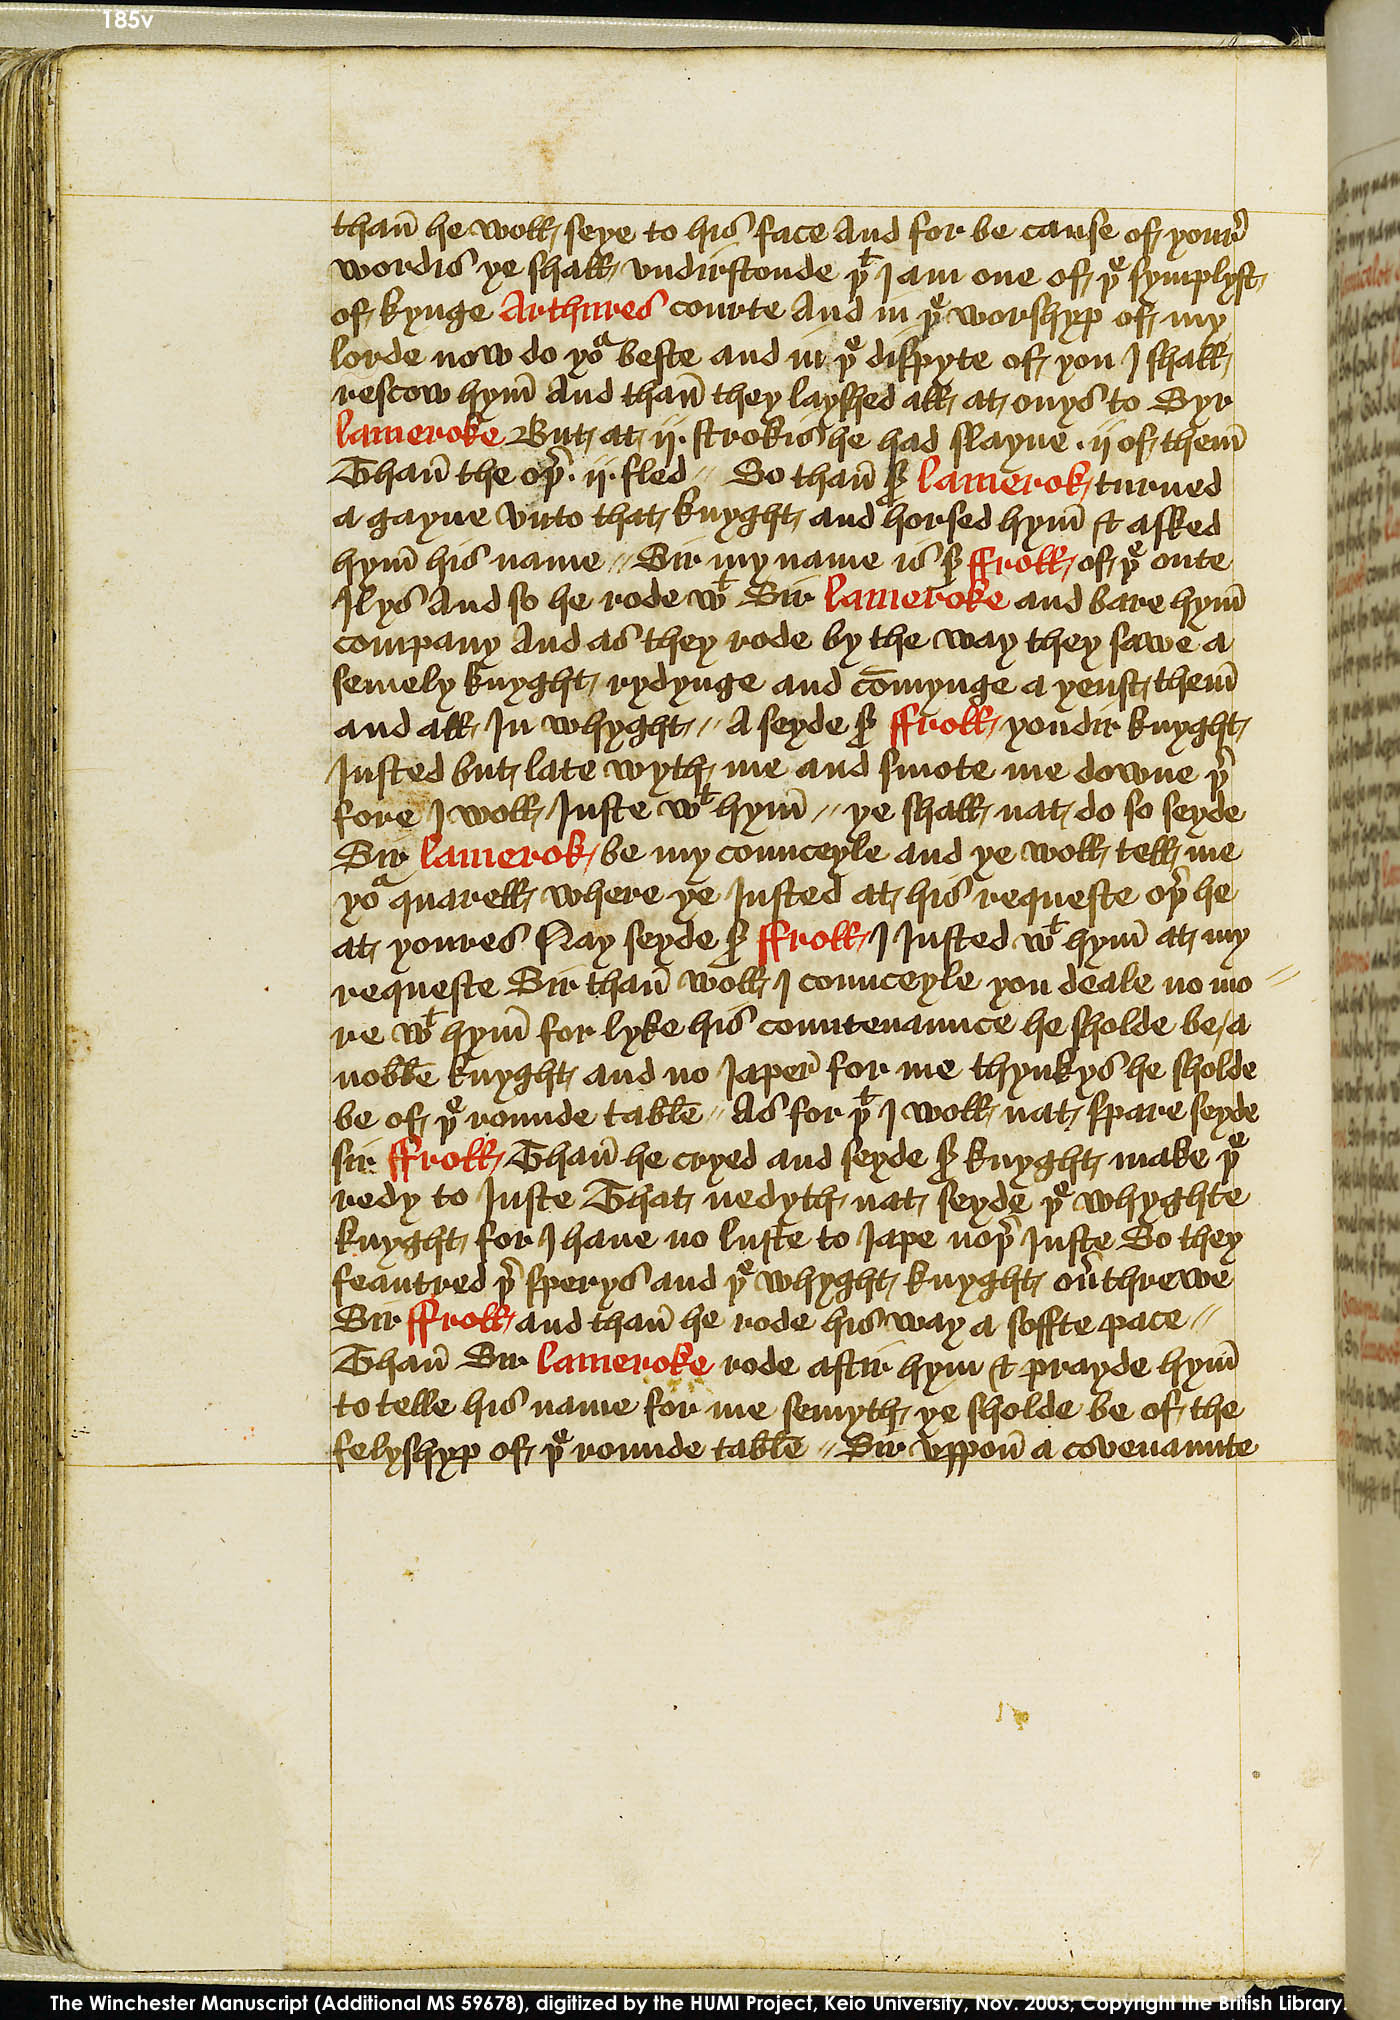 185v
than̄ he woll seye to his face And for be cause of your̛
wordis ye shall vndirstonde þᵗ I am one of þᵉ symplyst
of kynge Arthures courte And in þᵉ worshyp of my
lorde now do yoᵃ beste and in þᵉ dispyte of you I shall
rescow hym̄ And than̄ they laysshed all at onys to Syr
lameroke But at ij. strokis he had slayne . ij of them̄
Than̄ the oþ̛ . ij. fled // So than̄ sꝭ lamerok turned
a gayne vnto that knyght and horsed hym̄ & asked
hym̄ his name // Sir my name is sꝭ ffroll of þᵉ oute
Ilys And so he rode wᵗ Sir lameroke and bare hym̄
company And as they rode by the way they sawe a
semely knyght rydynge and com̄ynge a yenst them̄
and all In whyght // A seyde sꝭ ffroll yondir knyght
Iusted but late wyth me and smote me downe þ̛
fore I woll Iuste wᵗ hym̄ // ye shall nat do so seyde
Sir lamerok be my counceyle and ye woll tell me
yoᵃ quarell where ye Iusted at his requeste oþ̛ he
at youres Nay seyde sꝭ ffroll I Iusted wᵗ hym̄ at my
requeste Sir than̄ woll I counceyle you deale no mo //
re wᵗ hym̄ for lyke his countenaunce he sholde be / a
nobłe knyght and no Iaper̛ for me thynkys he sholde
be of þᵉ rounde tabłe // As for þᵗ I woll nat spare seyde
sir ffroll Than̄ he cryed and seyde sꝭ knyght make þᵉ
redy to Iuste That nedyth nat seyde þᵉ whyghte
knyght for I haue no luste to Iape noþ̛ Iuste So they
feautred þ̛ sperys and þᵉ whyght knyght oưthrewe
Sir ffroll and than̄ he rode his way a soffte pace //
Than̄ Sir lameroke rode aftir hym & prayde hym̄
to telle his name for me semyth ye sholde be of the
felyshyp of þᵉ rounde tabłe // Sir vppon̄ a covenaunte
The Winchester Manuscript (Additional MS 59678), digitized by the HUMI Project, Keio University, Nov. 2003; Copyright the British Library.